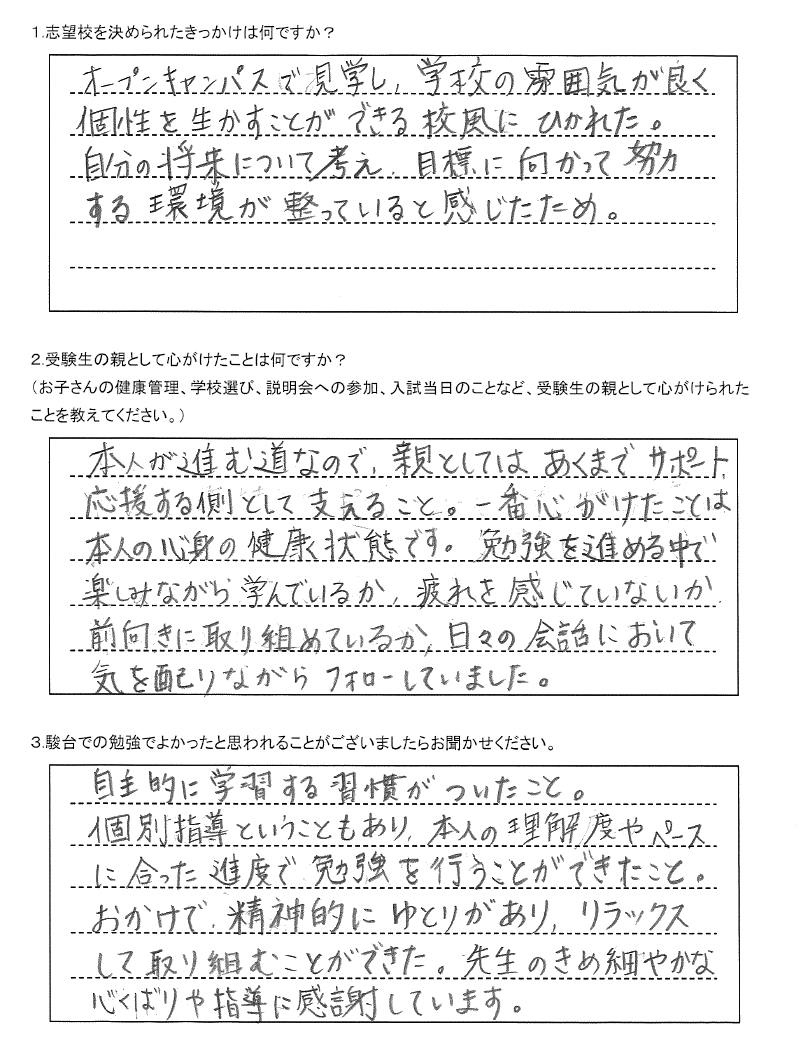 1.志望校を決められたきっかけは何ですか？
オープンキャンパスで見学し、学校の雰囲気が良く
個性を生かすことができる校風に ひかれた。
自分の将来について考え、目標に向かって努力
する環境が整っていると感じたため。
2.受験生の親として心がけたことは何ですか？
（お子さんの健康管理、学校選び、説明会への参加、入試当日のことなど、受験生の親として心がけられた
ことを教えてください。）
本人が進む道なので、親としては あくまで サポート、
応援する側として支えること。一番心がけたことは
本人の心身の健康状態です。勉強を進める中で
楽しみながら学んでいるか、疲れを感じていないか、
前向きに取り組めているか、日々の会話において
気を配りながら フォローしていました。
3.駿台での勉強でよかったと思われることがございましたらお聞かせください。
自主的に学習する習慣がついたこと。
個別指導ということもあり、本人の理解度やペース
に合った進度で勉強を行うことができたこと。
おかげで、精神的に ゆとりがあり、リラックス
して取り組むことができた。先生のきめ細やかな
心くばりや指導に感謝しています。